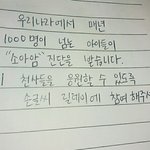 우리나라에서 매년
1000명이 넘는 아이들이
"소아암" 진단을 받습니다.
천사들을 응원할 수 있도록
손글씨 릴레이에 참여해주세